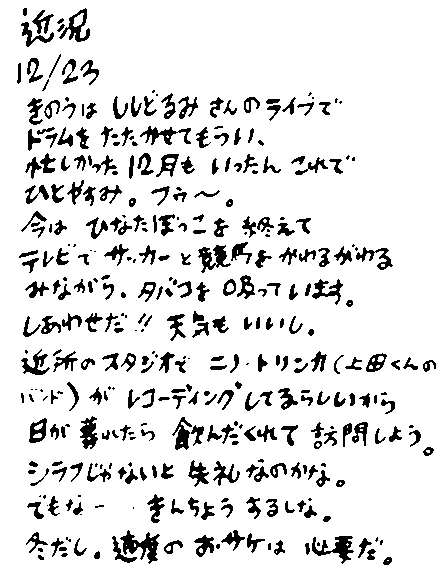 近況
12/23
きのうは ししどるみ さんの ライブで
ドラムを たたかせてもらい、
忙しかった 12月も いったん これで
ひとやすみ。 フゥ〜。
今は ひなたぼっこを 終えて
テレビで サッカーと 競馬を かわるがわる
みながら、タバコを 吸っています。
しあわせだ!! 天気も いいし。
近所の スタジオで ニノ・トリンカ(上田くんの
バンド)が レコーディングしてるらしいから
日が 暮れたら 飲んだくれて 訪問しよう。
シラフじゃないと 失礼なのかな。
でもなー きんちょう するしな。
冬だし。 適度の おサケは 必要だ。